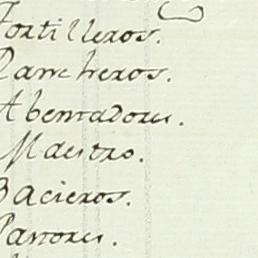 Tortilleros.
Rancheros.
Abentadores.
Maestro.
Bacieros.
Pastores.